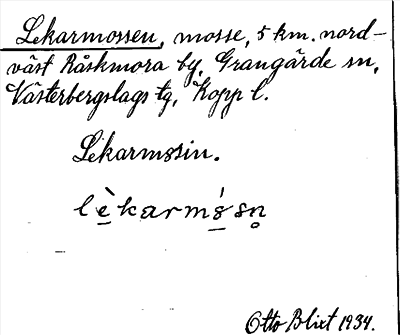 Lekarmossen, mosse, 5 km. nord-
väst Råskmora by, Grangärde sn,
Västerbergslags tg, Kopp l.
Lekarmøsin.
Otto Blixt 1934.